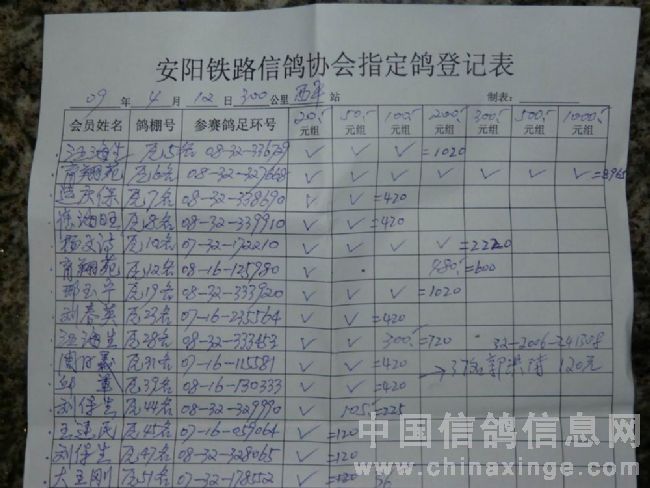 安阳铁路信鸽协会指定鸽登记表
09 年 4 月 12 日 300 公里 西平 站 制表:
会员姓名 鸽棚号 参赛鸽足环号 20元组 50元组 100元组 200元组 300元组 500元组 1000元组
汪海生 尾15名 08-32-33 ✓ ✓ ✓ =1020
育翔苑 尾16名 08-32-327668 ✓ ✓ ✓ ✓ ✓ ✓ ✓ =8965
庆保 尾7名 08-32-338690 ✓ ✓ =420
徐海旺 尾8名 08-32-339910 ✓ ✓ =420
杨文涛 尾10名 07-32-172210 ✓ ✓ ✓ ✓ =2220
育翔苑 尾12名 08-16-125980 ✓ ✓ 480 =600
邢玉平 尾19名 08-32-333920 ✓ ✓ ✓ =1020
刘春英 尾23名 07-16-235564 ✓ ✓ =420
汪海生 尾28名 08-32-333453 ✓ ✓ 300 =720 32-2006-241308
周 义 尾31名 07-16-115581 ✓ ✓ =420 → 37名郭洪涛 120元
邱 董 尾39名 08-16-130333 ✓ ✓ =420
刘保生 尾44名 08-32-329990 ✓ 105 =225
王连民 尾45名 07-16-059064 ✓ =120
刘保生 尾47名 08-32-328065 ✓ =120
大王刚 尾51名 07-32-178552 ✓ =120 56
中国信鸽信息网
www.chinaxinge.com